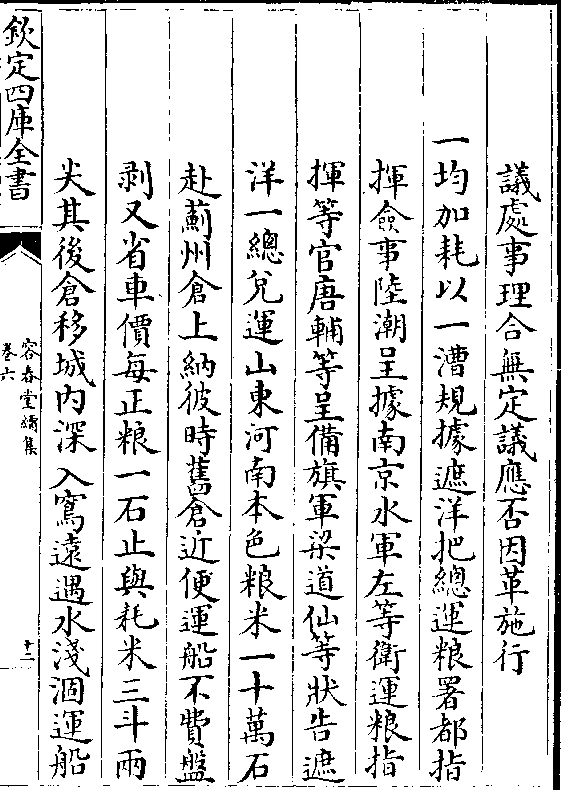 議處事理合無定議應否因革施行
一均加耗以一漕規據遮洋把總運粮署都指
揮僉事陸潮呈據南京水軍左等衛運粮指
揮等官唐輔等呈備旗軍梁道仙等狀告遮
洋一總兌運山東河南本色粮米一十萬石
赴薊州倉上納彼時舊倉近便運船不費盤
剥又省車價每正粮一石止與耗米三斗兩
尖其後倉移城内深入窵遠遇水淺涸運船
欽定四庫全書
容春堂續集
卷六
十二